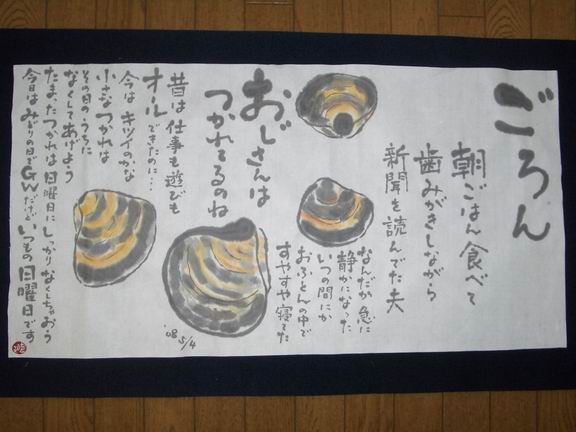 ごろん
朝ごはん食べて
歯みがきしながら
新聞を読んでた夫
なんだか急に
静かになった
いつの間にか
おふとんの中で
すやすや寝てた
おじさんは
つかれてるのね
昔は仕事も遊びも
オールできたのに…
今はキツイのかな
小さなつかれは
その日のうちに
なくしてあげよう
たまったつかれは日曜日にしっかりなくしちゃおう
今日はみどりの日でGWだけどいつもの日曜日です
'08 5/4